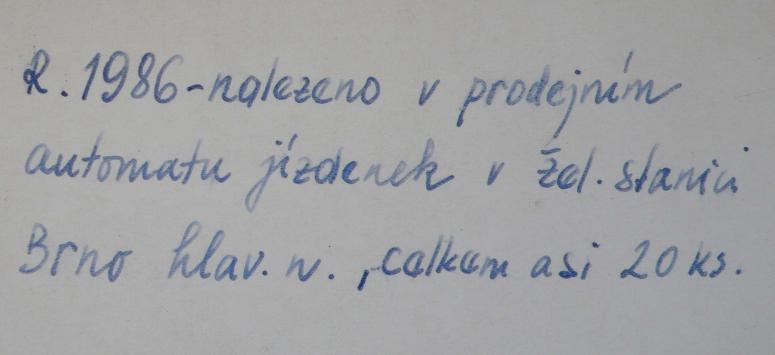 R. 1986-nalezeno v prodejním
automatu jízdenek v žel. stanici
Brno hlav. n., celkem asi 20 ks.